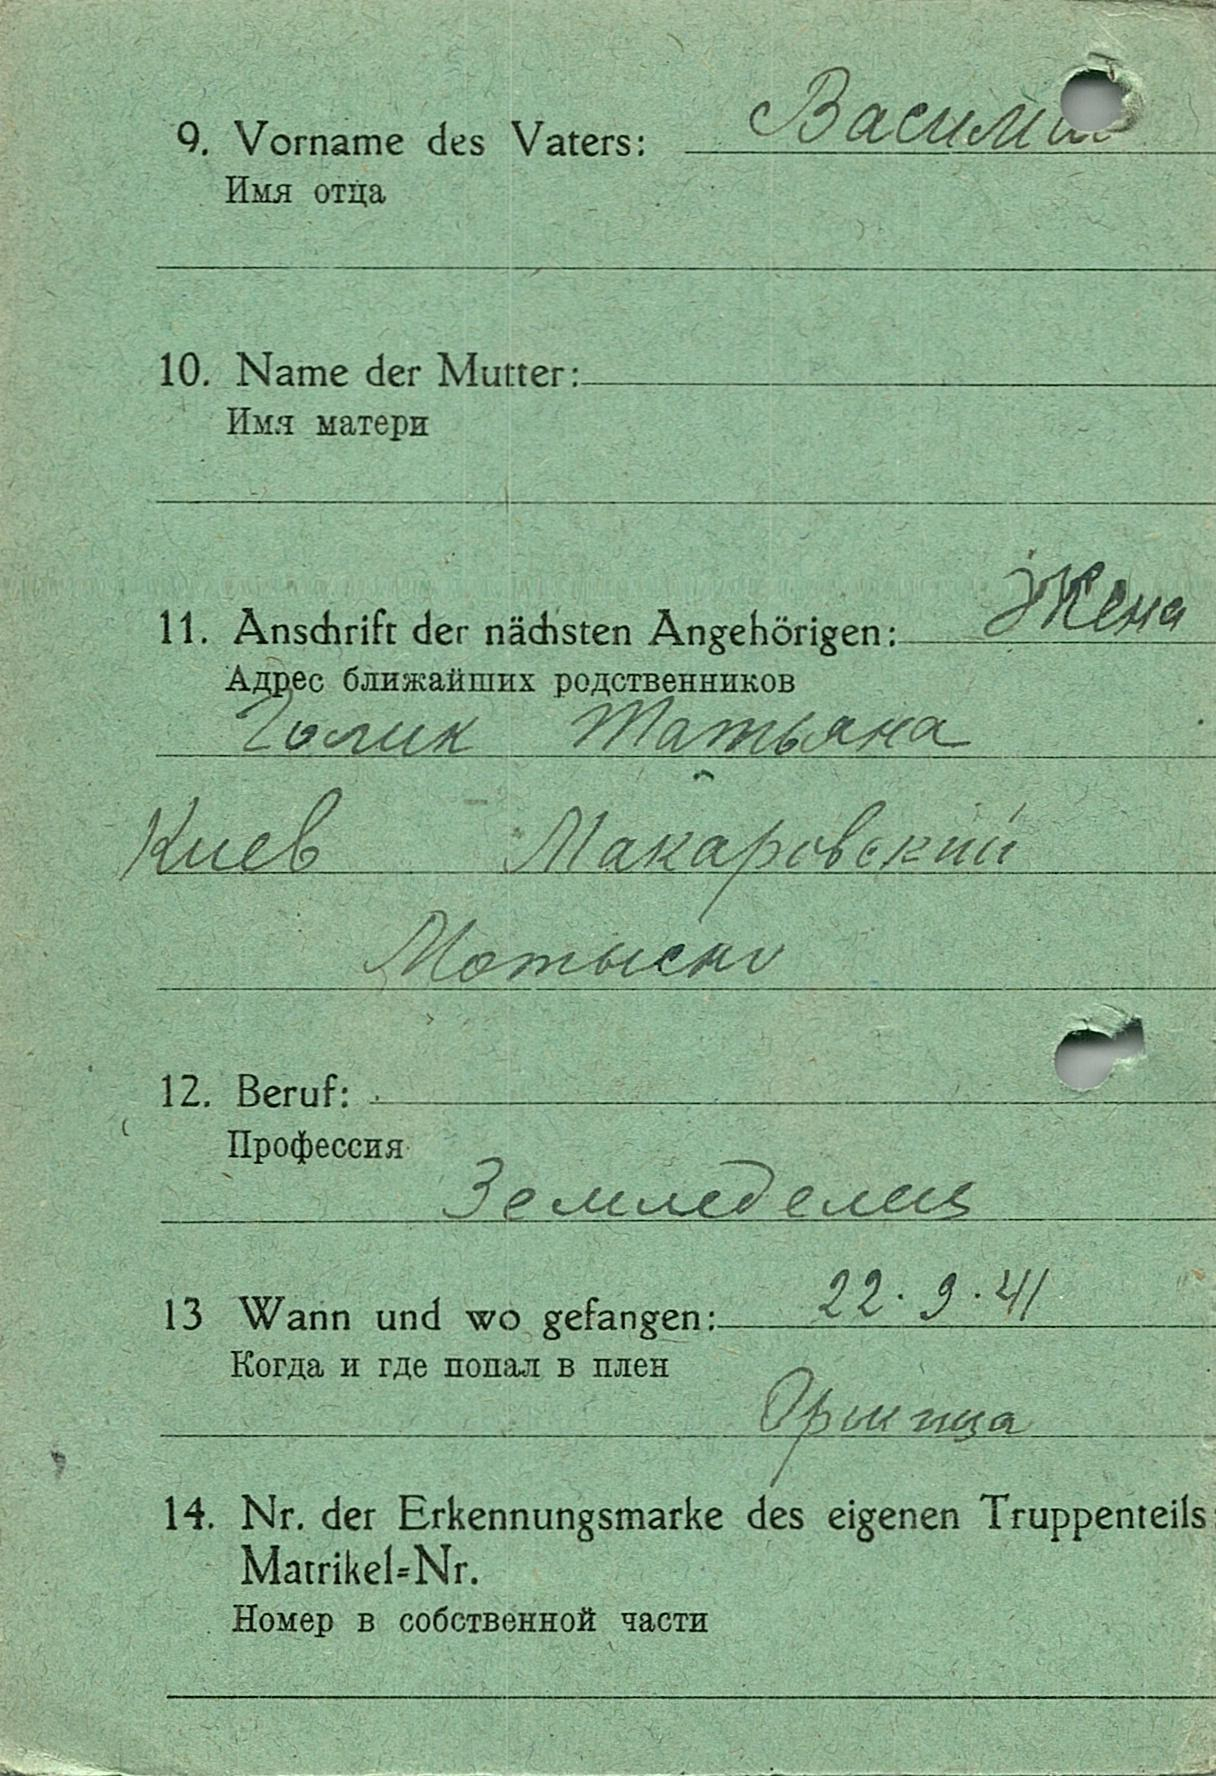 9. Vorname des Vaters: Василий
Имя отца
10. Name der Mutter:
Имя матери
11. Anschrift der nächsten Angehörigen: Жена
Адрес ближайших родственников
Голик Татьяна
Киев Макаровский
Мотыскно
12. Beruf:
Профессия
Земледелец
13 Wann und wo gefangen: 22.9.41
Когда и где попал в плен
Оржица
14. Nr. der Erkennungsmarke des eigenen Truppenteils:
Matrikel=Nr.
Номер в собственной части